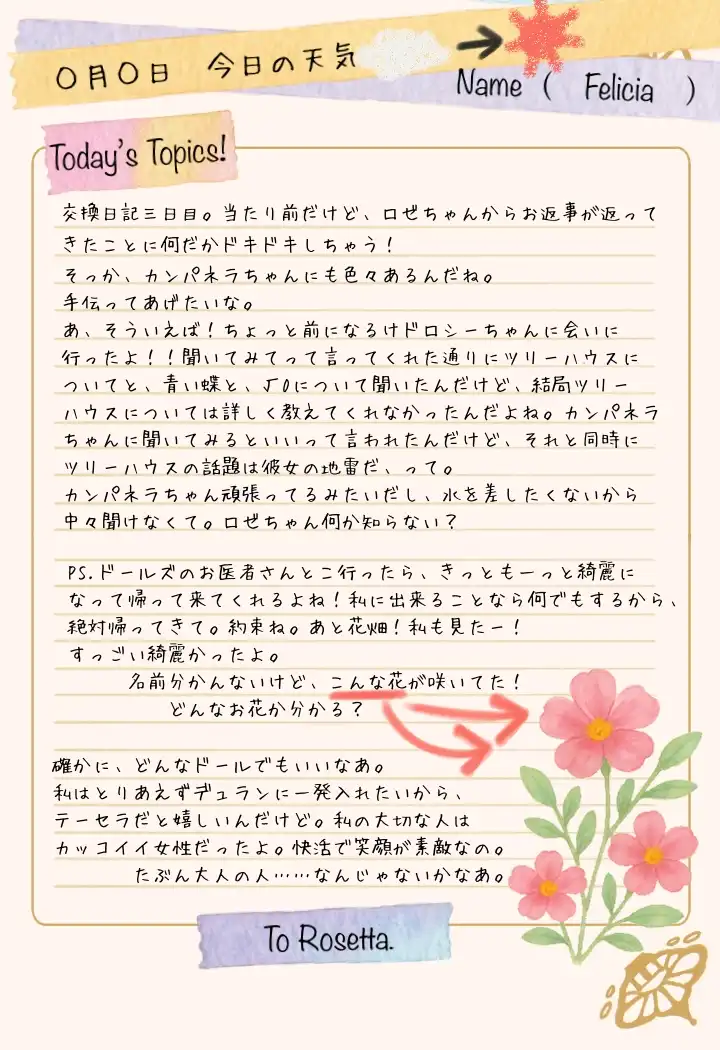 〇月〇日 今日の天気
Name ( Felicia )
Today's Topics!
交換日記三日目。当たり前だけど、ロゼちゃんからお返事が返って
きたことに何だかドキドキしちゃう!
そっか、カンパネラちゃんにも色々あるんだね。
手伝ってあげたいな。
あ、そういえば!ちょっと前になるけドロシーちゃんに会いに
行ったよ!!聞いてみてって言ってくれた通りにツリーハウスに
ついてと、青い蝶と、√0について聞いたんだけど、結局ツリー
ハウスについては詳しく教えてくれなかったんだよね。カンパネラ
ちゃんに聞いてみるといいって言われたんだけど、それと同時に
ツリーハウスの話題は彼女の地雷だ、って。
カンパネラちゃん頑張ってるみたいだし、水を差したくないから
中々聞けなくて。ロゼちゃん何か知らない?
PS.ドールズのお医者さんとこ行ったら、きっともーっと綺麗に
なって帰って来てくれるよね!私に出来ることなら何でもするから、
絶対帰ってきて。約束ね。あと花畑!私も見たー!
すっごい綺麗かったよ。
名前分かんないけど、こんな花が咲いてた!
どんなお花か分かる?
確かに、どんなドールでもいいなあ。
私はとりあえずデュランに一発入れたいから、
テーセラだと嬉しいんだけど。私の大切な人は
カッコイイ女性だったよ。快活で笑顔が素敵なの。
たぶん大人の人……なんじゃないかなあ。
To Rosetta.